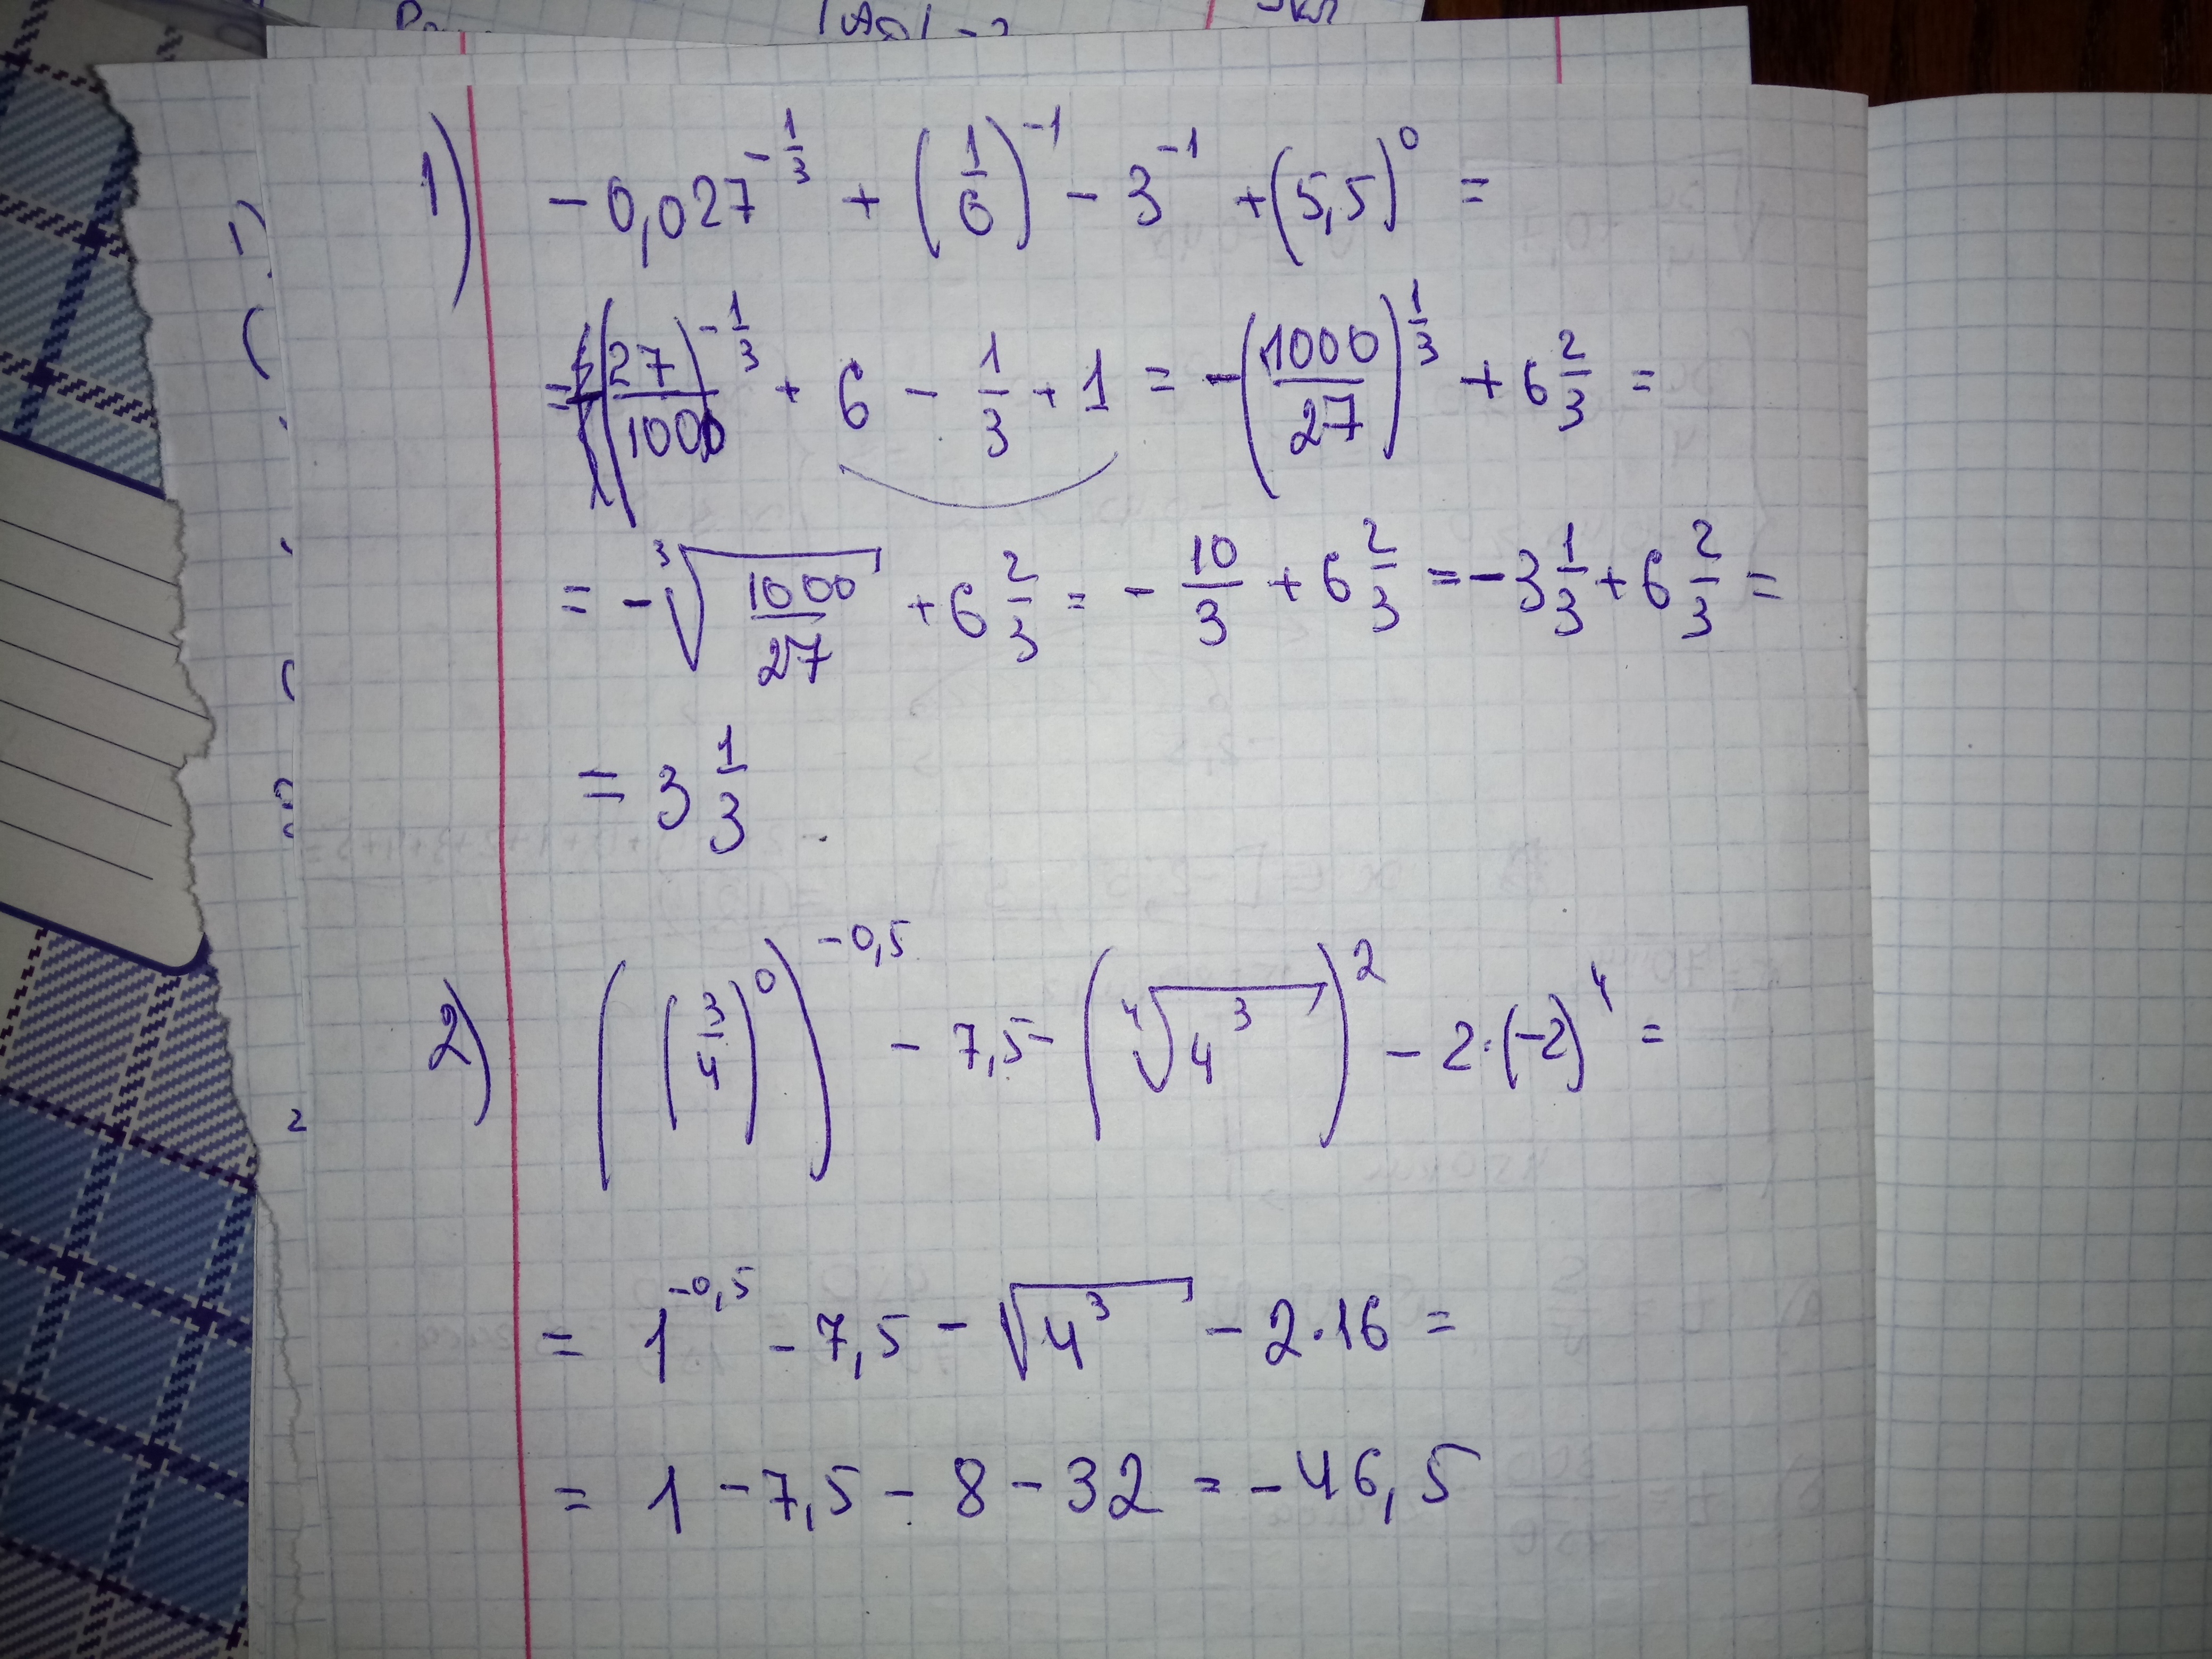 1) -0,027^{-\frac{1}{3}} + (\frac{1}{6})^{-1} - 3^{-1} + (5,5)^0 =
= -(\frac{27}{1000})^{-\frac{1}{3}} + 6 - \frac{1}{3} + 1 = -(\frac{1000}{27})^{\frac{1}{3}} + 6\frac{2}{3} =
= -\sqrt[3]{\frac{1000}{27}} + 6\frac{2}{3} = -\frac{10}{3} + 6\frac{2}{3} = -3\frac{1}{3} + 6\frac{2}{3} =
= 3\frac{1}{3}
2) ((\frac{3}{4})^0)^{-0,5} - 7,5 - (\sqrt[4]{4^3})^2 - 2·(-2)^4 =
= 1^{-0,5} - 7,5 - \sqrt{4^3} - 2·16 =
= 1 - 7,5 - 8 - 32 = -46,5